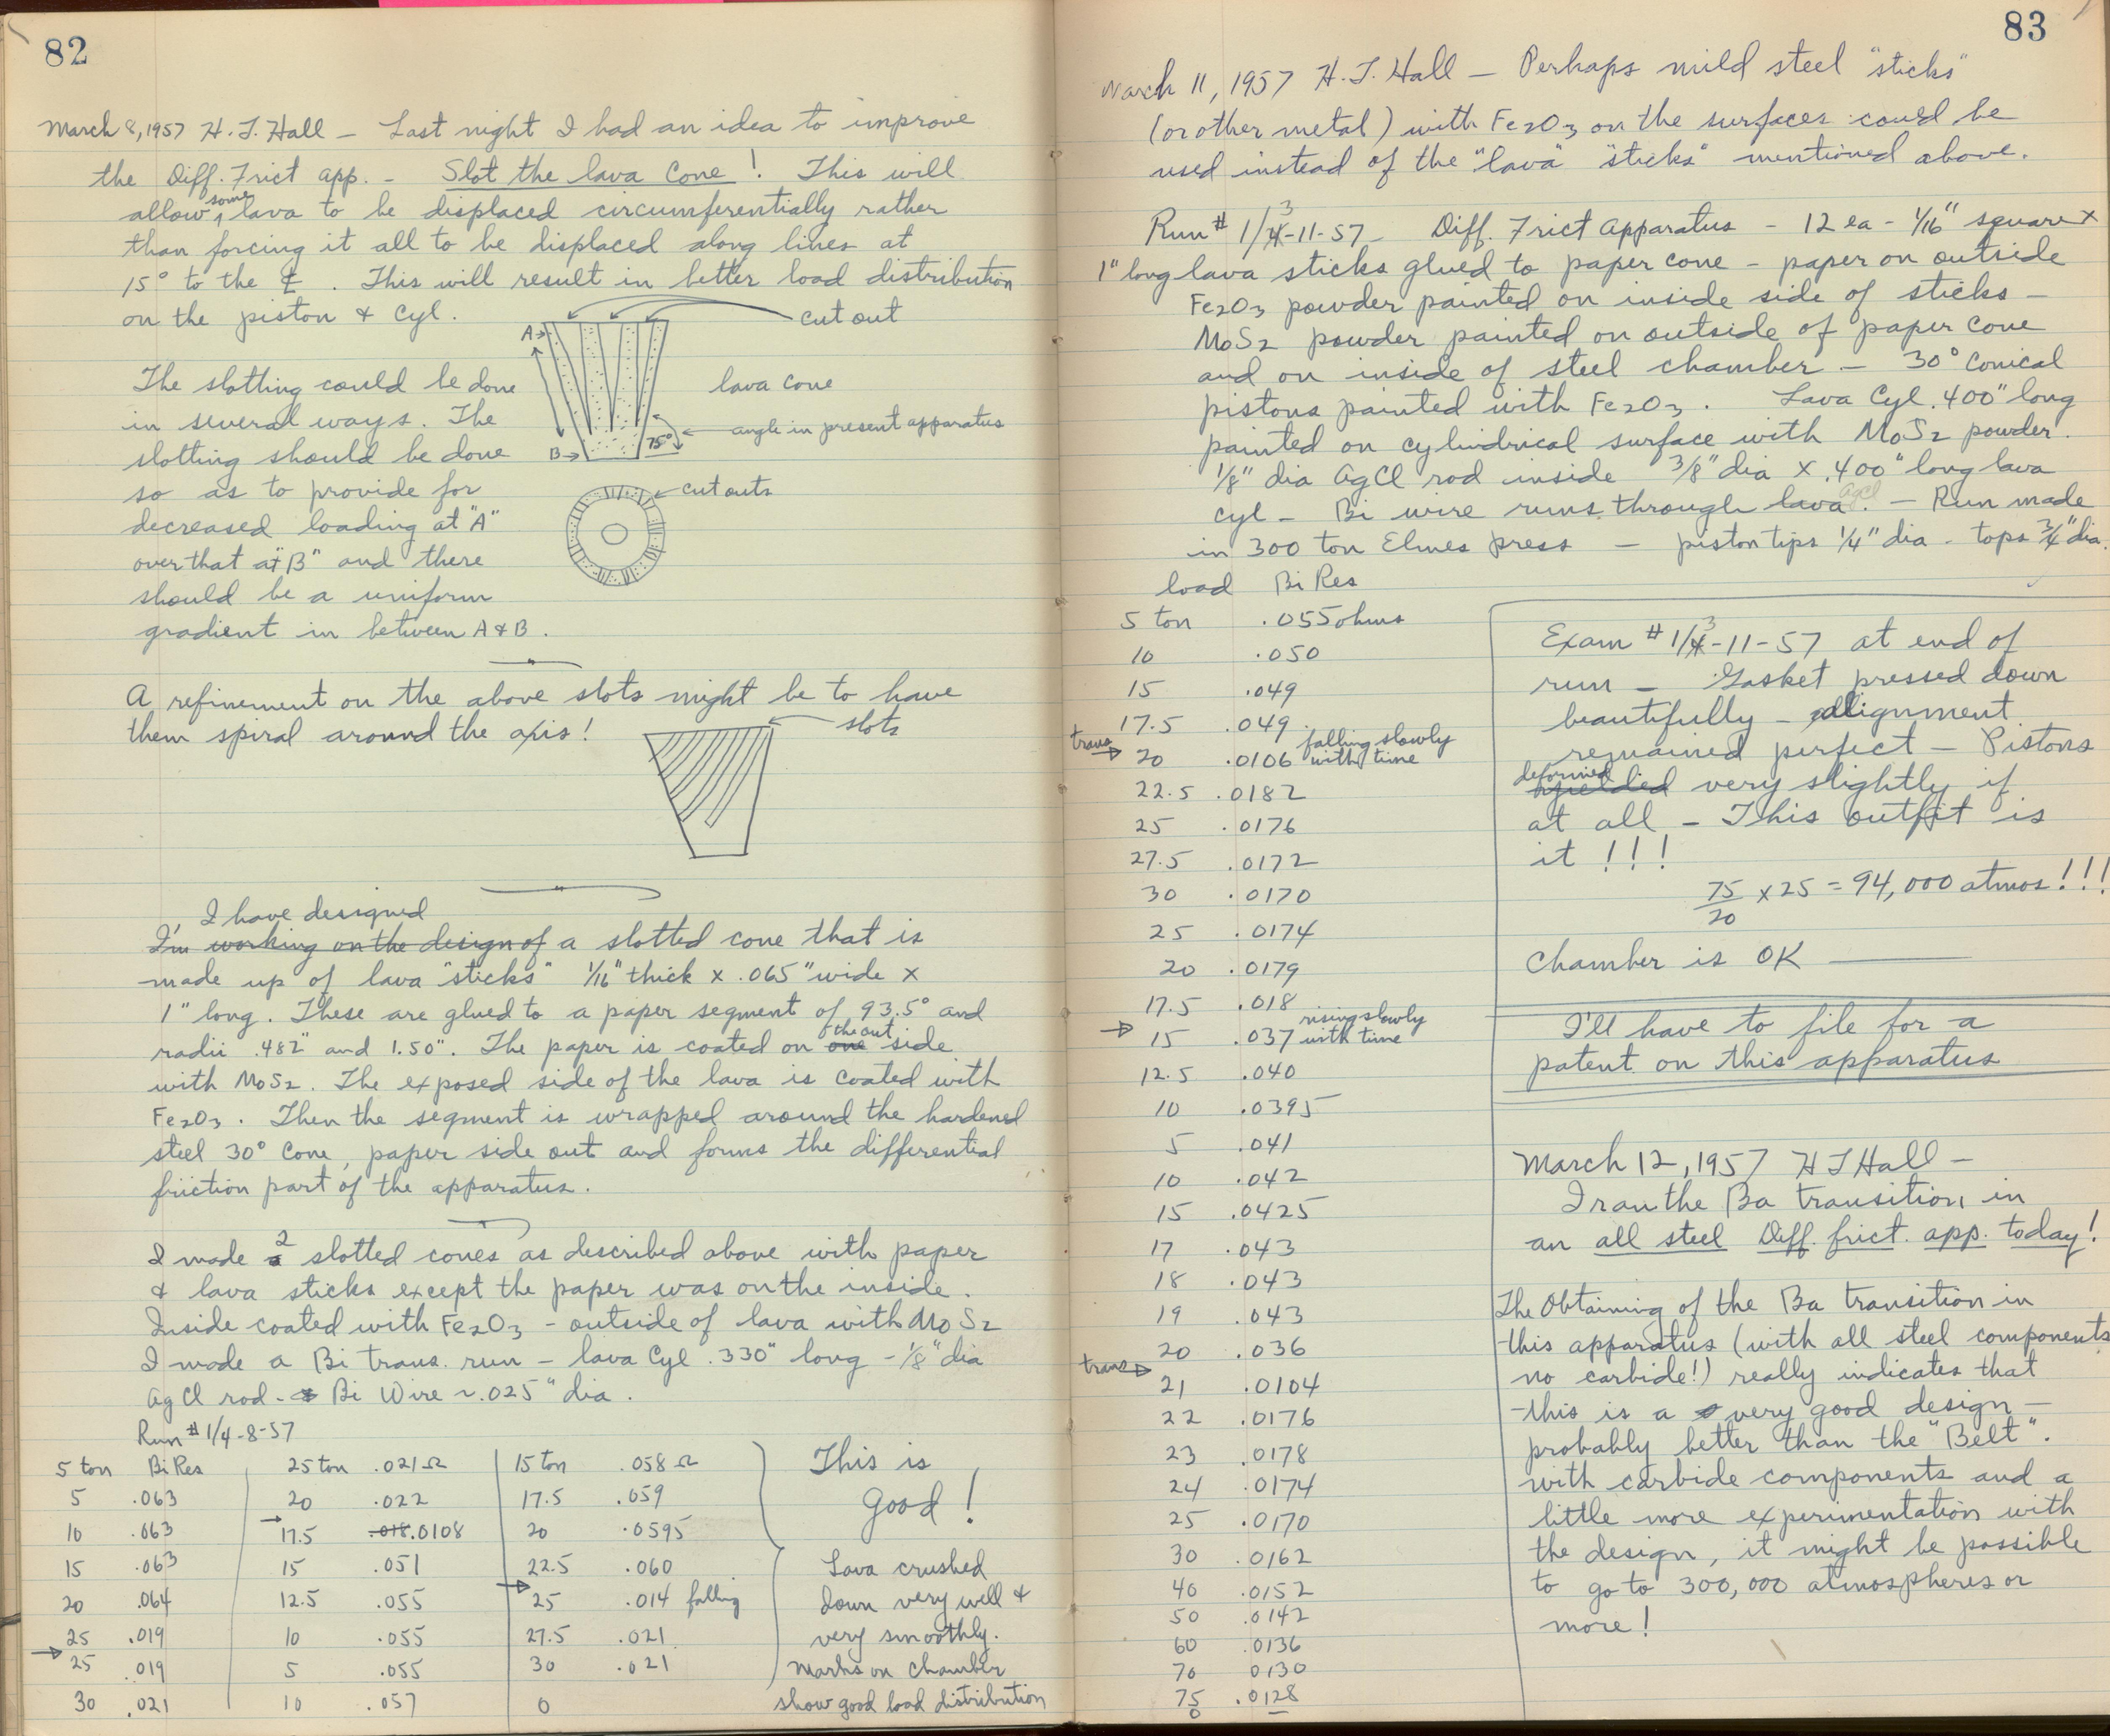 82
March 8, 1957 H. T. Hall — Last night I had an idea to improve
the Diff. Frict app. - Slot the lava Cone! This will
allow some lava to be displaced circumferentially rather
than forcing it all to be displaced along lines at
15° to the ℄. This will result in better load distribution
on the piston & Cyl.
cut out
A→
The slotting could be done
in several ways. The
slotting should be done
so as to provide for
decreased loading at "A"
over that at "B" and there
should be a uniform
gradient in between A & B.
lava cone
angle in present apparatus
B→ 75°
cut outs
A refinement on the above slots might be to have
them spiral around the axis!
slots
I have designed
I'm working on the design of a slotted cone that is
made up of lava "sticks" 1/16" thick x .065" wide x
1" long. These are glued to a paper segment of 93.5° and
radii .482" and 1.50". The paper is coated on one the out side
with MoS2. The exposed side of the lava is coated with
Fe2O3. Then the segment is wrapped around the hardened
steel 30° Cone, paper side out and forms the differential
friction part of the apparatus.
I made a 2 slotted cones as described above with paper
& lava sticks except the paper was on the inside.
Inside coated with Fe2O3 - outside of lava with MoS2
I made a Bi trans. run - lava Cyl .330" long - 1/8" dia
AgCl rod - Bi Wire ~.025" dia.
Run # 1/4-8-57
5 ton Bi Res 25 ton .021Ω 15 ton .058Ω
5 .063 20 .022 17.5 .059
10 .063 → 17.5 .018 .0108 20 .0595
15 .063 15 .051 22.5 .060
20 .064 12.5 .055 → 25 .014 falling
25 .019 10 .055 27.5 .021
→ 25 .019 5 .055 30 .021
30 .021 10 .057 0
This is
Good!
Lava crushed
down very well &
very smoothly.
Marks on chamber
show good load distribution
83
March 11, 1957 H. T. Hall — Perhaps mild steel "sticks"
(or other metal) with Fe2O3 on the surfaces could be
used instead of the "lava" "sticks" mentioned above.
Run # 1/4 3-11-57 Diff. Frict Apparatus - 12 ea - 1/16" square x
1" long lava sticks glued to paper cone - paper on outside
Fe2O3 powder painted on inside side of sticks -
MoS2 powder painted on outside of paper cone
and on inside of steel chamber - 30° conical
pistons painted with Fe2O3. Lava Cyl .400" long
painted on cylindrical surface with MoS2 powder.
1/8" dia AgCl rod inside 3/8" dia x .400" long lava
cyl - Bi wire runs through lava AgCl. - Run made
in 300 ton Elmes press - piston tips 1/4" dia - tops 3/4" dia.
load Bi Res
5 ton .055 ohms
10 .050
15 .049
17.5 .049
trans → 20 .0106 falling slowly with time
22.5 .0182
25 .0176
27.5 .0172
30 .0170
25 .0174
20 .0179
17.5 .018
→ 15 .037 rising slowly with time
12.5 .040
10 .0395
5 .041
10 .042
15 .0425
17 .043
18 .043
19 .043
20 .036
trans →
21 .0104
22 .0176
23 .0178
24 .0174
25 .0170
30 .0162
40 .0152
50 .0142
60 .0136
70 0130
75 .0128
0
Exam # 1/4 3-11-57 at end of
run — Gasket pressed down
beautifully - allignment
remained perfect - Pistons
deformed yielded very slightly if
at all - This outfit is
it!!!
75/20 x 25 = 94,000 atmos!!!
Chamber is OK
I'll have to file for a
patent on this apparatus
March 12, 1957 H T Hall -
I ran the Ba transition in
an all steel Diff. frict. app. today!
The Obtaining of the Ba transition in
this apparatus (with all steel components
no carbide!) really indicates that
this is a very good design -
probably better than the "Belt".
with carbide components and a
little more experimentation with
the design, it might be possible
to go to 300,000 atmospheres or
more!